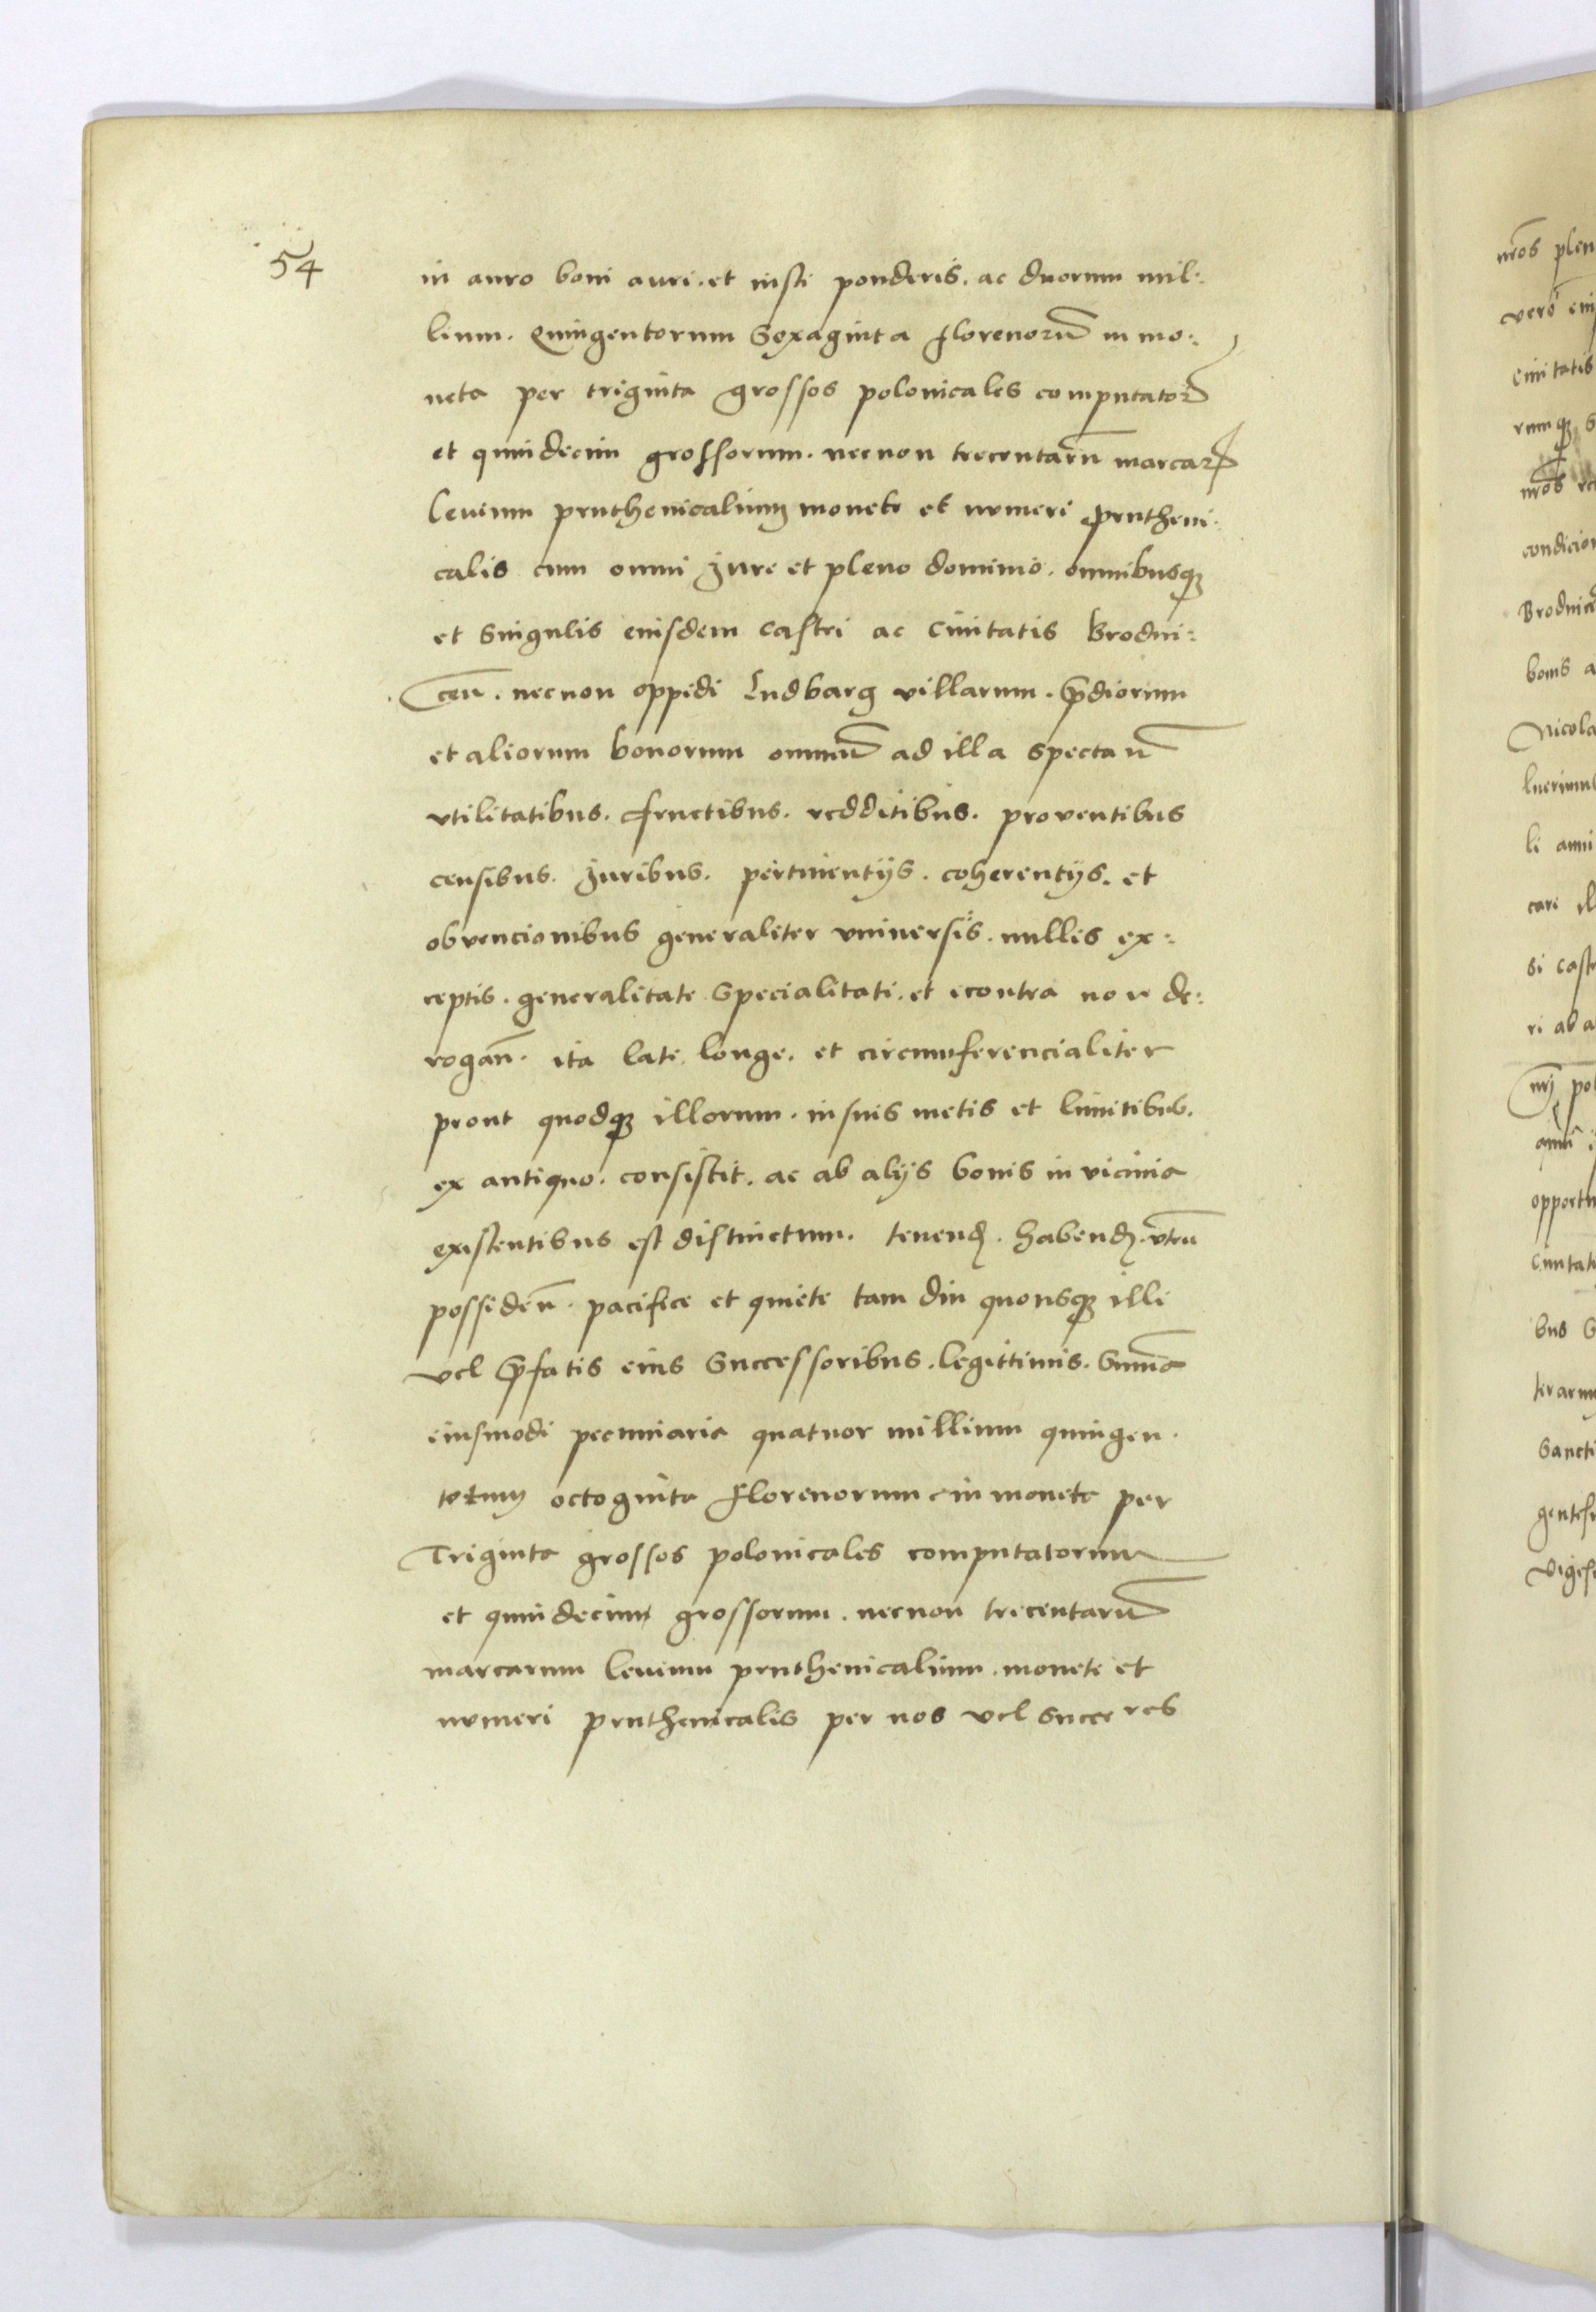 54
in auro boni auri. et iusti ponderis. ac duorum mil:
lium. Quingentorum Sexaginta florenorū in mo:
neta per triginta grossos polonicales computatorū
et quindecim grossorum. necnon trecentarū marcarꝝ
leuium pruthenicalium monete et numeri prutheni:
calis cum omni Jure et pleno dominio. omnibusqꝫ
et Singulis eiusdem castri ac Ciuitatis Brodni:
ceñ. necnon oppidi Ludbarg villarum. p̄diorum
et aliorum bonorum omniū ad illa spectañ
vtilitatibus. fructibus. redditibus. proventibus
censibus. Juribus. pertinentijs. coherentijs. et
obvencionibus generaliter vniuersis. nullis ex:
ceptis. generalitate Specialitati. et econtra non de:
rogañ. ita late longe. et circumferencialiter
prout quodqꝫ illorum. in suis metis et limitibus.
ex antiquo. consistit. ac ab alijs bonis in vicinia
existentibus est distinctum. tenend̄. habend̄. vtrū
possideñ. pacifice et quiete tam diu quousqꝫ illi
vel p̄fatis eius Successoribus. legittimis. Sum̄a
eiusmodi pecuniaria quatuor millium quingen.
totum octoginta florenorum in moneta per
Triginta grossos polonicales computatorum
et quindecim grossorum. necnon trecentarū
marcarum leuium pruthenicalium. monete et
numeri pruthenicalis per nos vel Succeres
nr̄os plen
vero eiu
Ciuitatis
rumqꝫ S
nr̄os
condicion
Brodnice
bonis a
Nicola
luerimus
li
cari
si castr
ri ab a
opportu
Ciuitat
bus
terarum
Sancti
gentesi
vigesi